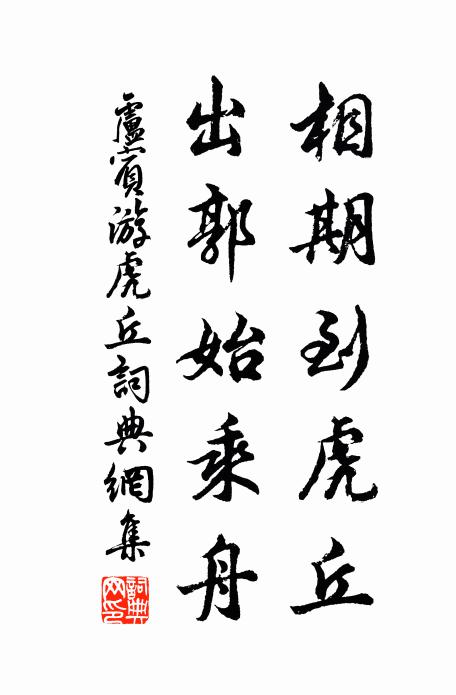 相期到虎丘
出郭始乘舟
盧賓游虎丘詞典網集
詞典網印